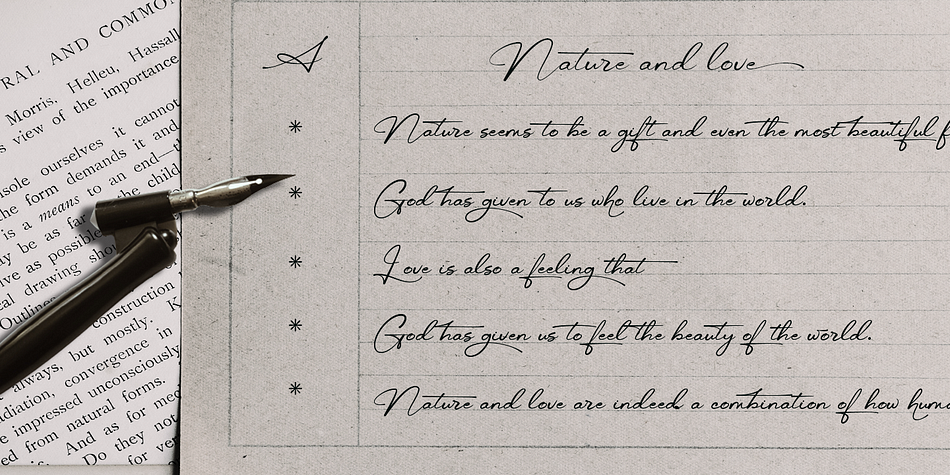 RAL AND COMMO
Morris, Helleu, Hassall
s view of the importance
sole ourselves it cannot
he form demands it and
is a means to an end—t
y be as far the child
ive as possible
cal drawing
Outline
construction
always, but mostly. K
diation, convergence in
e impressed unconsciously
ed from natural forms.
And as for med
Do they not
for ver
A
Nature and love
* Nature seems to be a gift and even the most beautiful f
* God has given to us who live in the world.
* Love is also a feeling that
* God has given us to feel the beauty of the world.
* Nature and love are indeed a combination of how huma